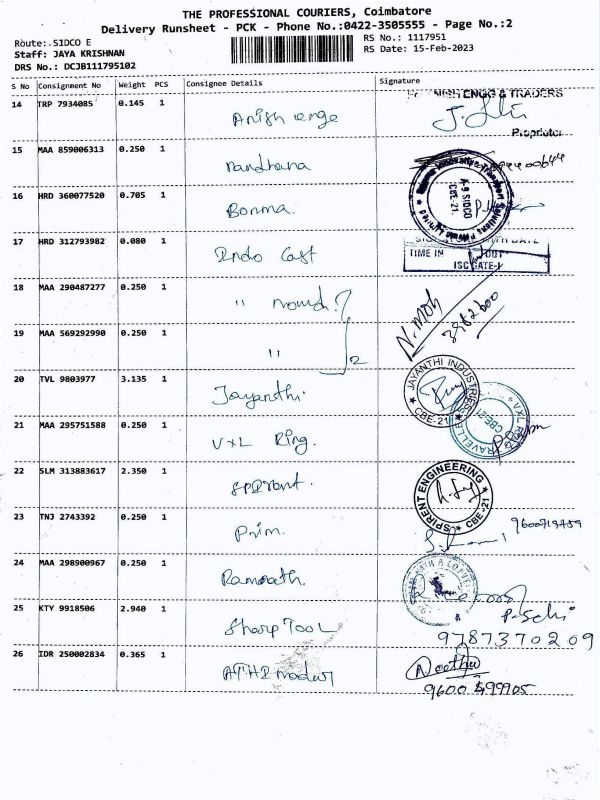 THE PROFESSIONAL COURIERS, Coimbatore
Delivery Runsheet - PCK - Phone No.:0422-3505555 - Page No.:2
Route: SIDCO E
RS No.: 1117951
Staff: JAYA KRISHNAN
RS Date: 15-Feb-2023
DRS No.: DCJB111795102
S No Consignment No Weight PCS Consignee Details Signature
14 TRP 7934085 0.145 1 Anish enge
ENGG & TRADERS
Proprietor
15 MAA 859006313 0.250 1 nandhana
16 HRD 360077520 0.705 1 Bonma.
A-9 SIDCO
CBE-21.
17 HRD 312793982 0.080 1 Indo Cast
TIME IN OUT
ISC GATE-1
18 MAA 290487277 0.250 1 "
N. Moh
19 MAA 569292990 0.250 1 " 2
20 TVL 9803977 3.135 1 Jayanthi.
JAYANTHI INDUSTRIES
CBE-21
21 MAA 295751588 0.250 1 VXL Ring.
VXL RING TRAVELLE
CBE-21
22 SLM 313883617 2.350 1 SPIRent.
SPIRENT ENGINEERING
CBE-21
23 TNJ 2743392 0.250 1 Prim.
9600719759
24 MAA 298900967 0.250 1 Ramnath.
25 KTY 9918506 2.940 1 Sharp TOOL
P. Selvi
9787370209
26 IDR 250002834 0.365 1
Neethu
9600 499905